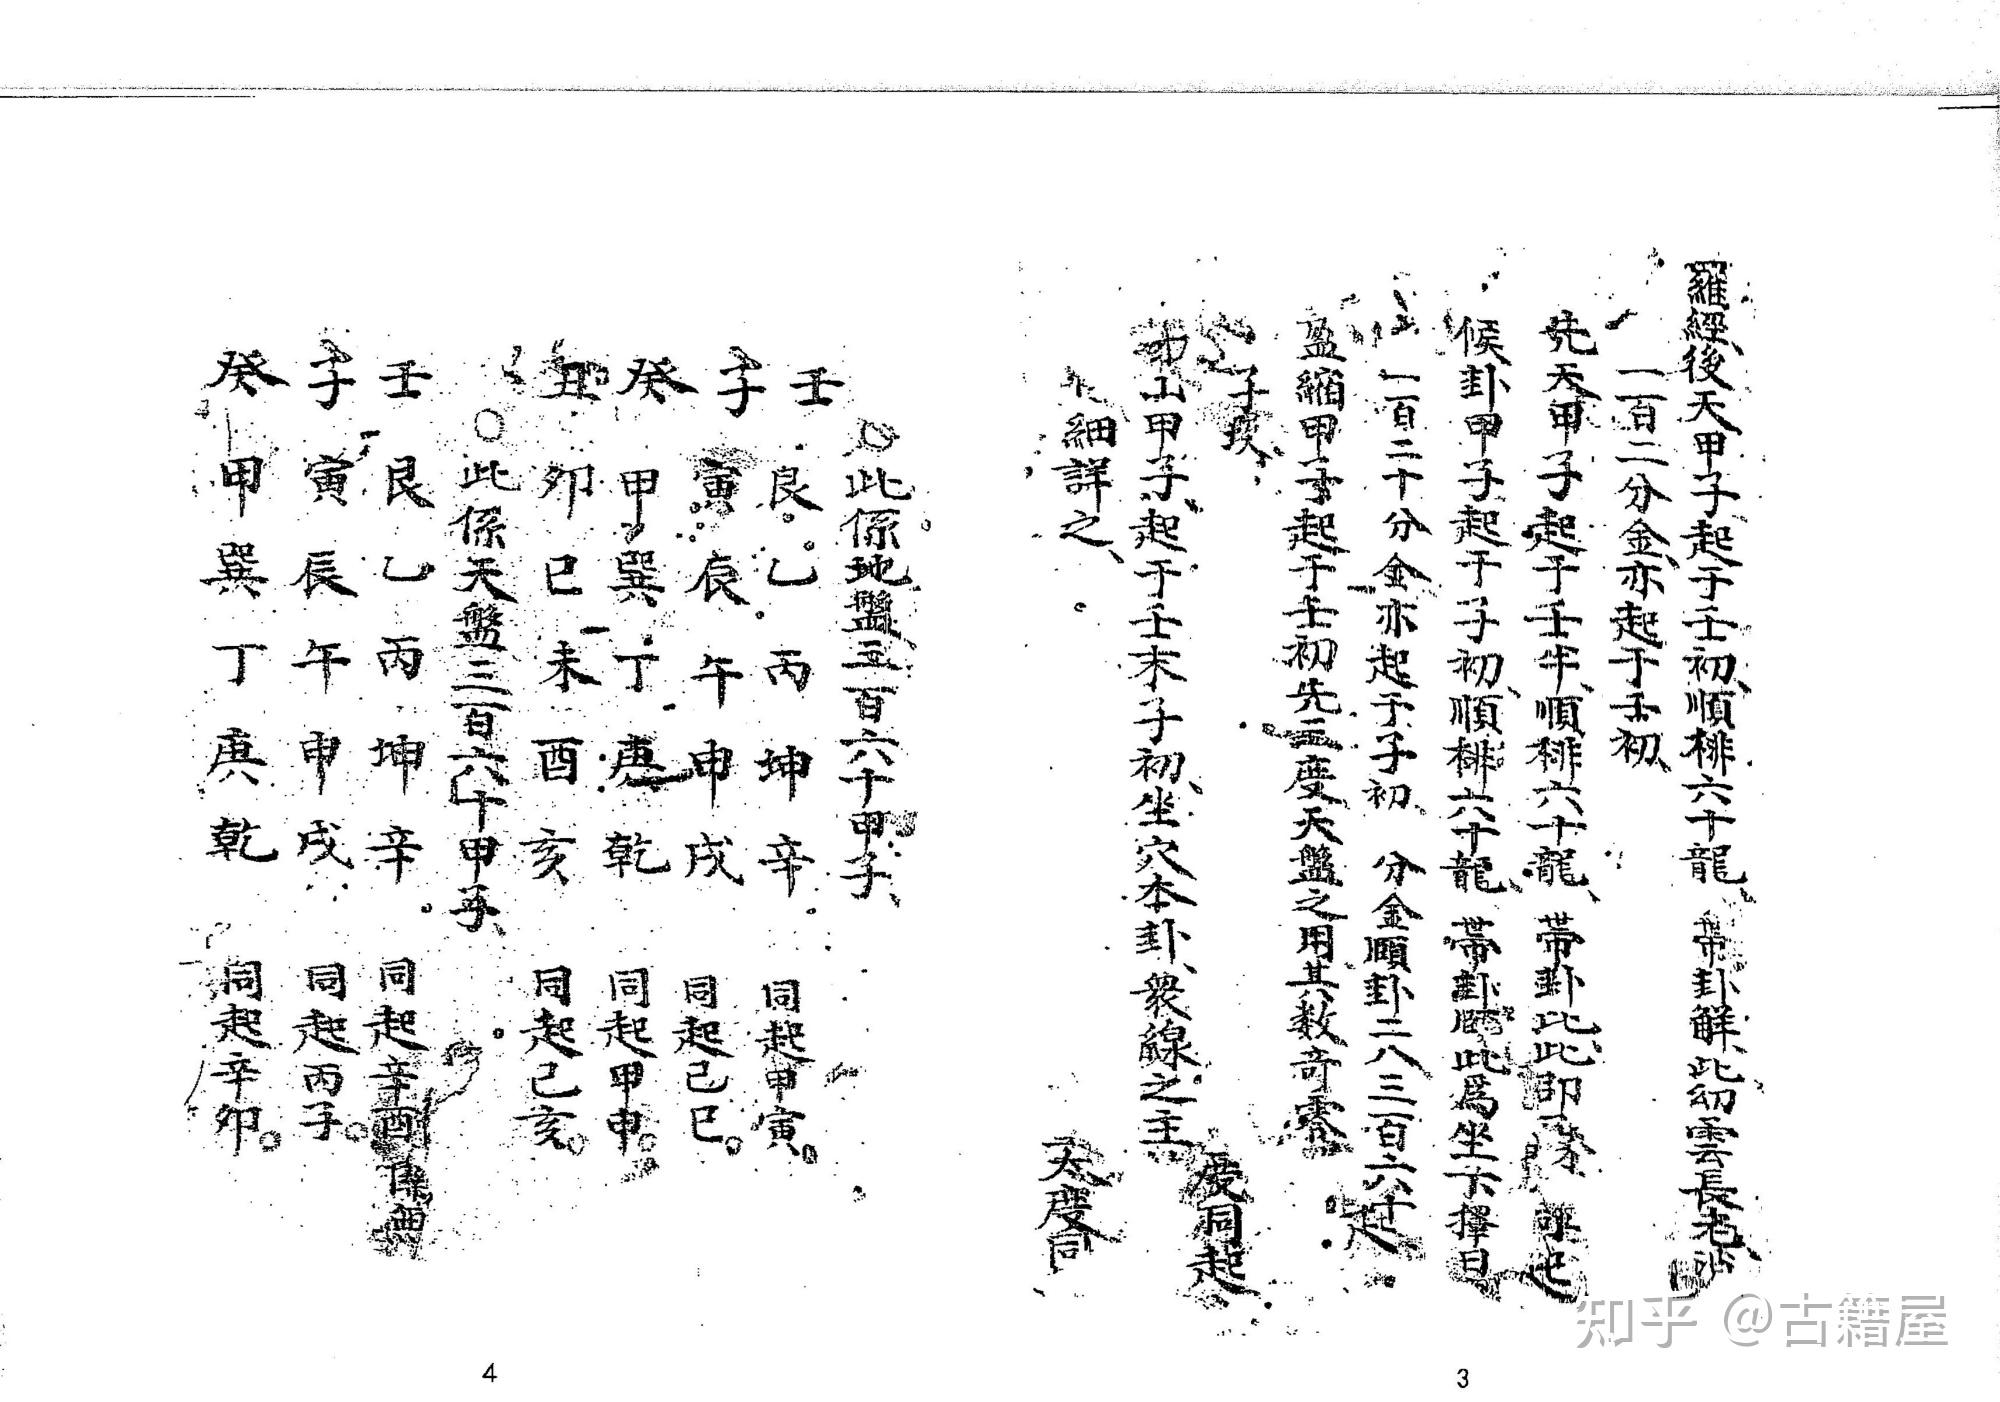 羅經後天甲子起于壬初順排六十龍、帶卦解、此幼雲長老
一百二分金亦起于壬初、
先天甲子起于壬半、順排六十龍、帶卦此
候卦甲子起于子初、順排六十龍、帶卦 此為坐下擇日
一百二十分金亦起于子初、分金頤卦二八三百六十
起
盈縮甲子起于壬初先三度天盤之用其数奇零
子
度同起
山甲子、起于壬末子初、坐穴本卦、衆線之主
細詳之、
太度同
3
此係地盤三百六十甲子、
壬 艮 乙 丙 坤 辛 同起甲寅
子 寅 辰 午 申 戌 同起己巳
癸 甲 巽 丁 庚 乾 同起甲申
丑 卯 巳 未 酉 亥 同起己亥
此係天盤三百六十甲子、
壬 艮 乙 丙 坤 辛 同起辛酉
子 寅 辰 午 申 戌 同起丙子
癸 甲 巽 丁 庚 乾 同起辛卯
4
知乎 @古籍屋